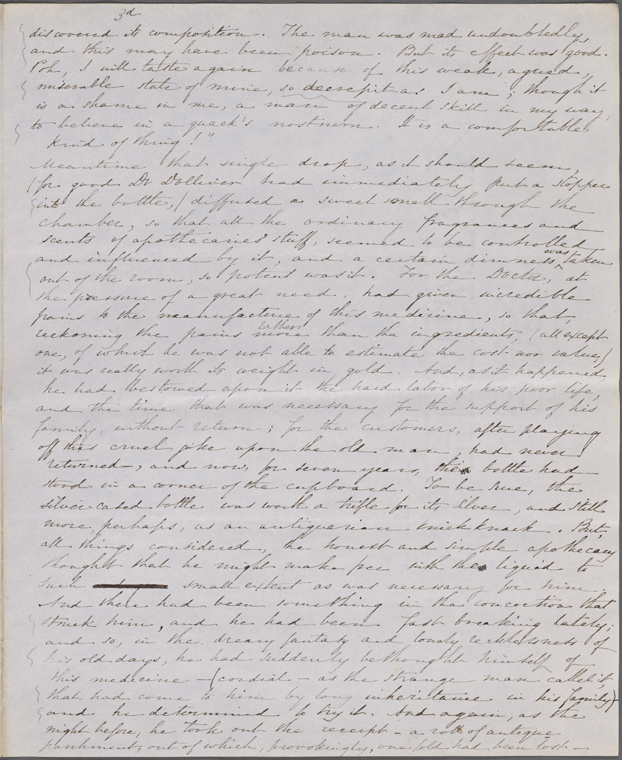 3d
discovered its composition. The man was mad undoubtedly,
and this may have been poison. But its effect was good.
Poh, I will taste again because of this weak, agued,
miserable state of mine, so decrepit as I am; though it
is a shame in me, a man of decent skill in my way,
to believe in a quack's nostrum. It is a comfortable
kind of thing!"
Meantime that single drop, as it should seem,
(for good Dr Dolliver had immediately put a stopper
into the bottle,) diffused a sweet smell through the
chamber, so that all the ordinary fragrances and
scents of apothecaries' stuff, seemed to be controlled
and influenced by it, and a certain dimness was taken
out of the room, so potent was it. For the Doctor, at
the pressure of a great need, had given incredible
pains to the manufacture of this medicine, so that,
reckoning the pains rather than the ingredients, (all except
one, of which he was not able to estimate the cost nor value,)
it was really worth its weight in gold. And, as it happened,
he had bestowed upon it the hard labor of his poor life,
and the time that was necessary for the support of his
family, without return; for the customers, after playing
off this cruel joke upon the old man, had never
returned; and now, for seven years, the bottle had
stood in a corner of the cupboard. To be sure, the
silver-cased bottle was worth a trifle for its silver, and still
more, perhaps, as an antiquarian knick knack. But,
all things considered, the honest and simple apothecary
thought that he might make free with the liquid to
such small extent as was necessary for him.
And there had been something in the concoction that
struck him, and he had been fast breaking lately;
and so, in the dreary fantasy and lonely recklessness of
his old days, he had suddenly bethought himself of
this medicine – (cordial – as the strange man called it
that had come to him by long inheritance in his family)
and he determined to try it. And again, as the
night before, he took out the receipt – a roll of antique
parchment, out of which, provokingly, one fold had been lost –